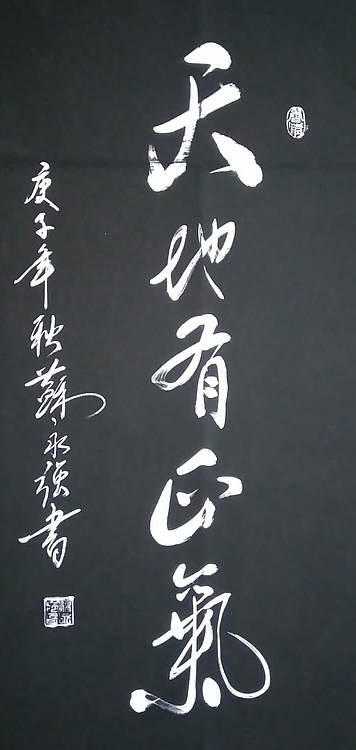 天地有正氣
庚子年秋蘇永强書